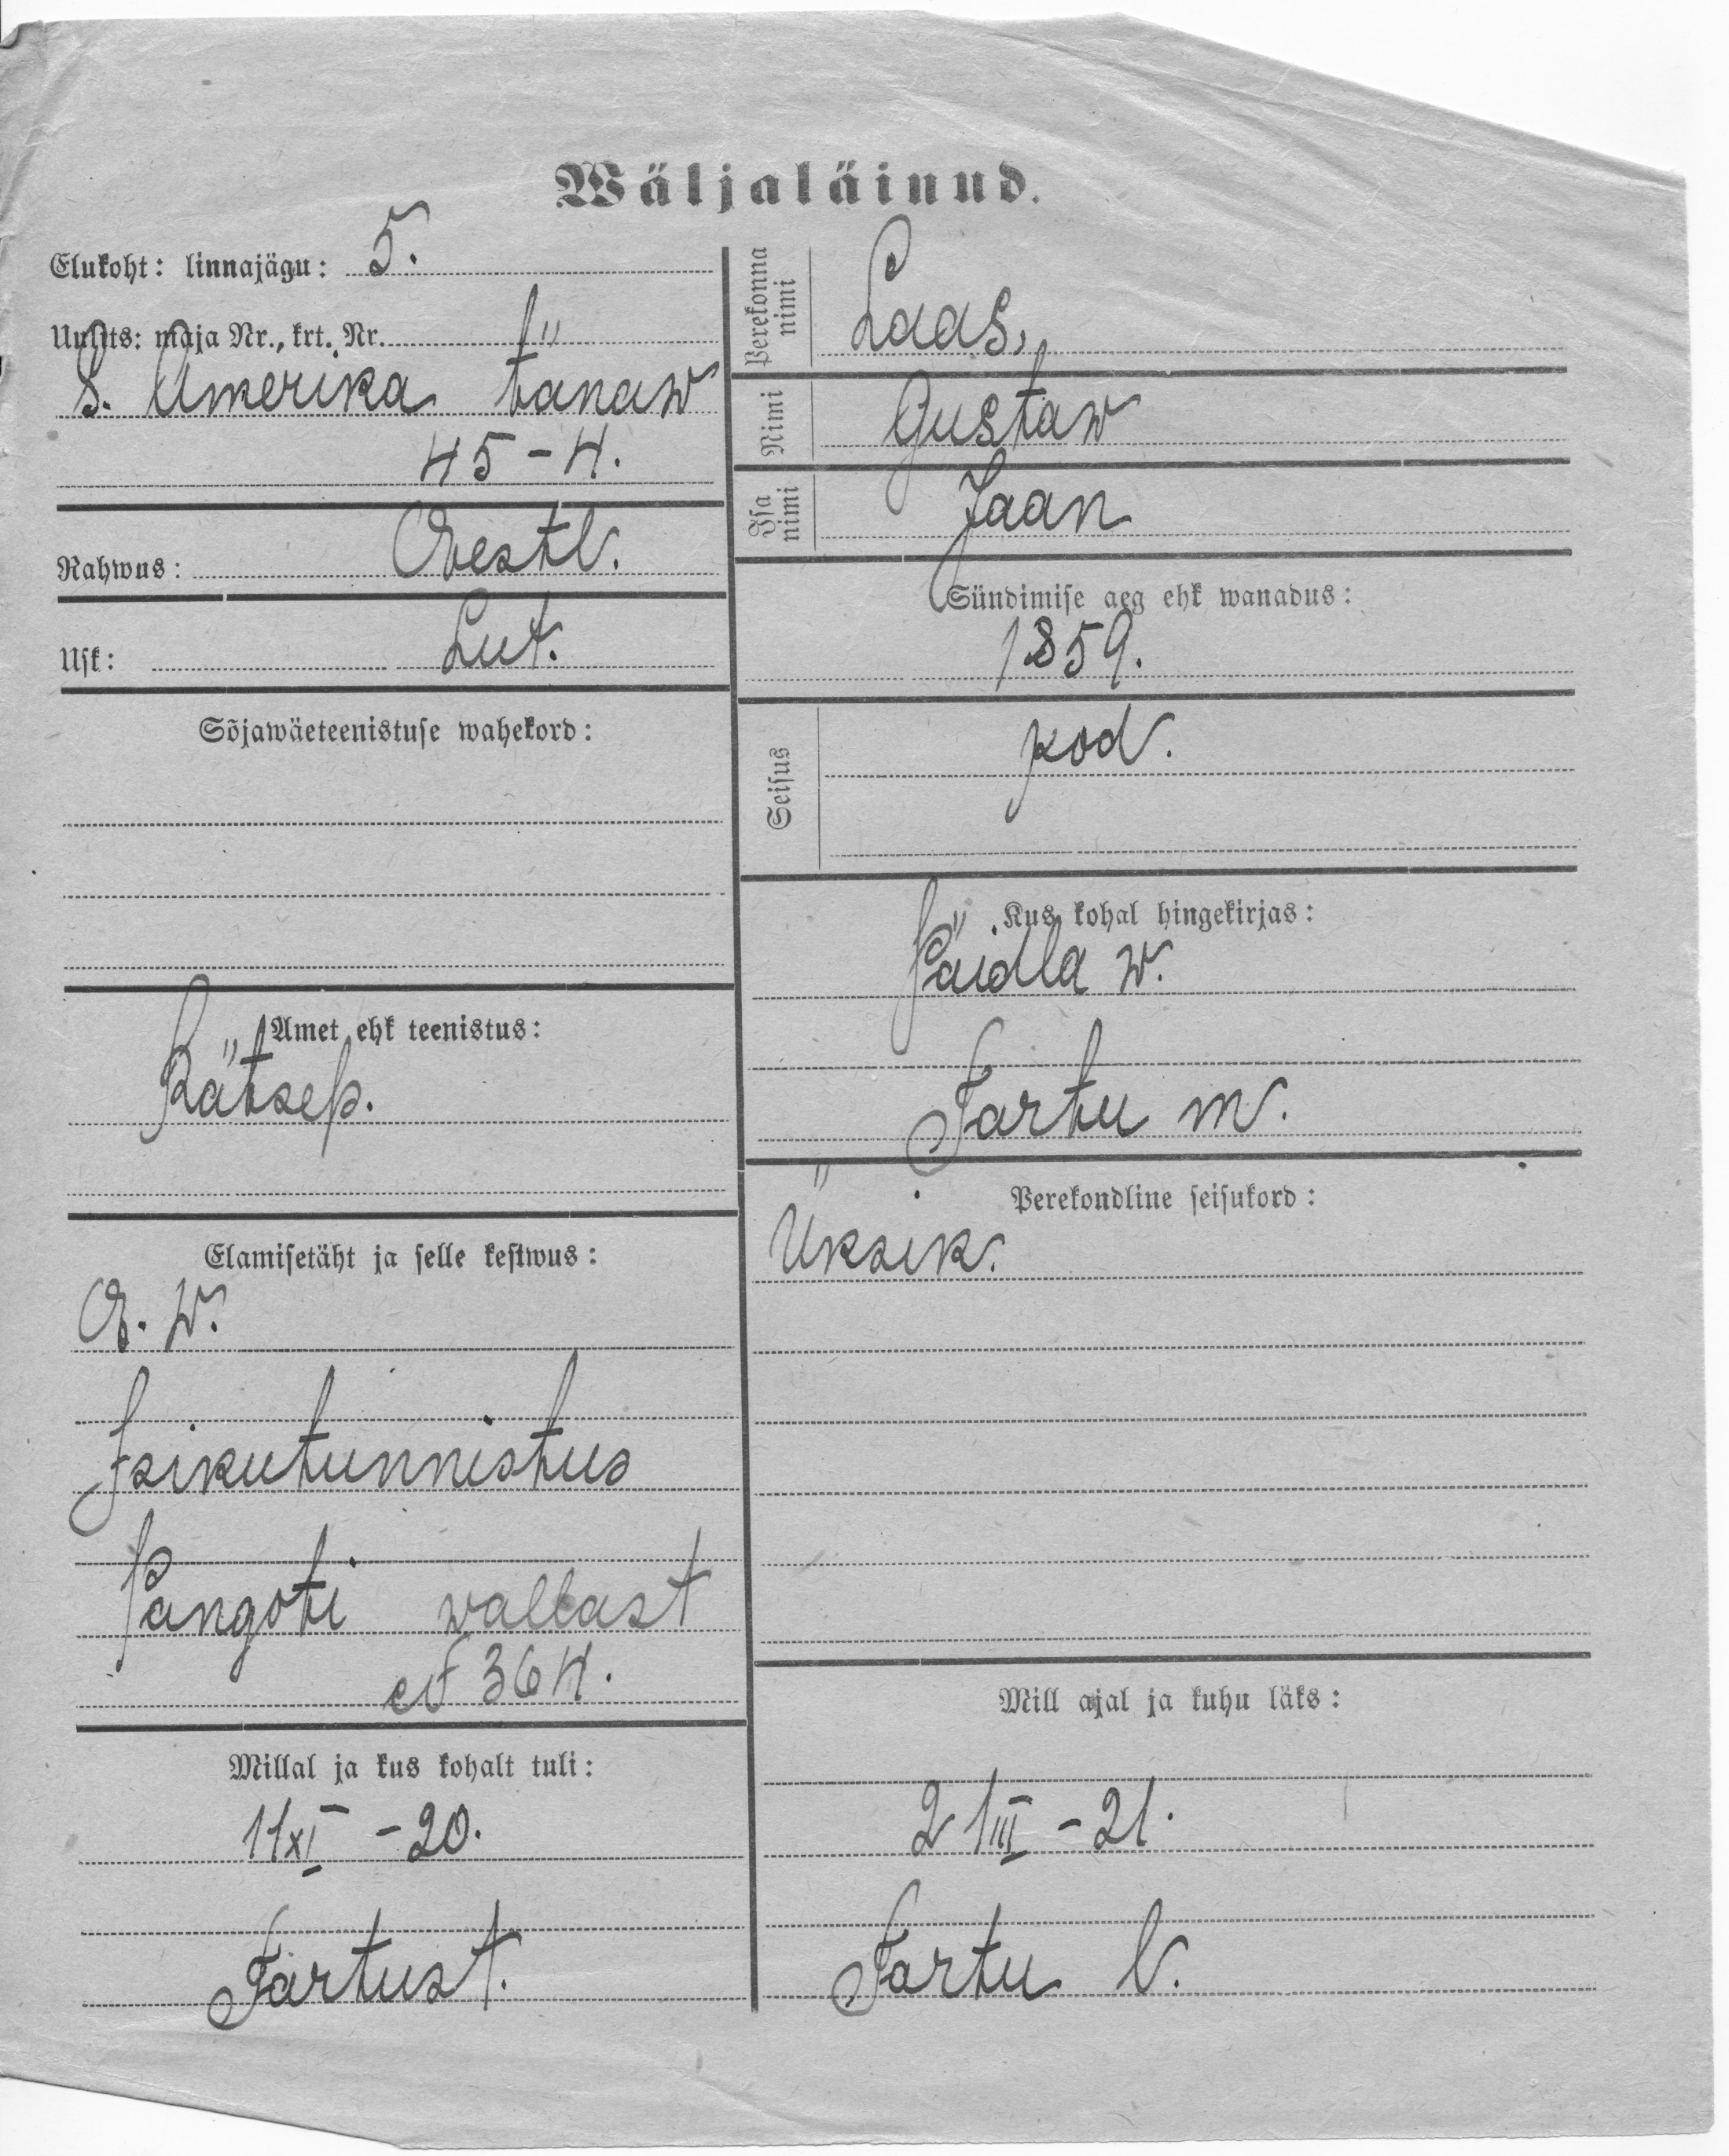 Wäljaläinud.
Elukoht: linnajägu: 5.
Uulits: maja Nr., krt. Nr.
S. Amerika tänaw
45-4.
Rahwus: Eestl.
Usk: Lut.
Sõjawäeteenistuse wahekord:
Amet ehk teenistus:
Rätsep.
Elamisetäht ja selle kestwus:
E. W.
Isikutunnistus
Pangoti wallast
№ 364.
Millal ja kus kohalt tuli:
11 XI -20.
Tartust.
Perekonna nimi
Laas,
Nimi
Gustaw
Isa nimi
Jaan
Sündimise aeg ehk wanadus:
1859.
Seisus
kod.
Kus kohal hingekirjas:
Päidla w.
Tartu m.
Perekondline seisukord:
Üksik.
Mill ajal ja kuhu läks:
21 III -21.
Tartu l.